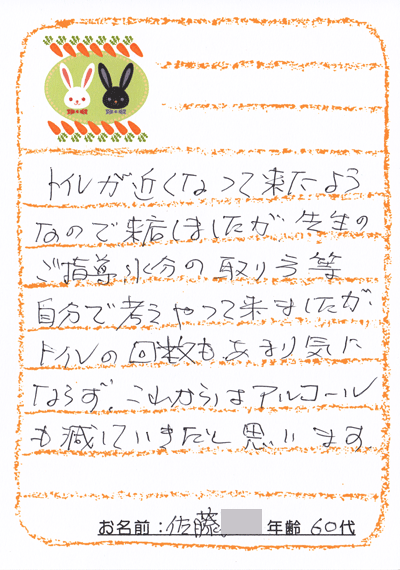 トイレが近くなって来たよう
なので来店しましたが先生の
ご指導水分の取り方等
自分で考えやって来ましたが
トイレの回数もあまり気に
ならず、これからはアルコール
も減していきたいと思います
お名前:佐藤 年齢 60代